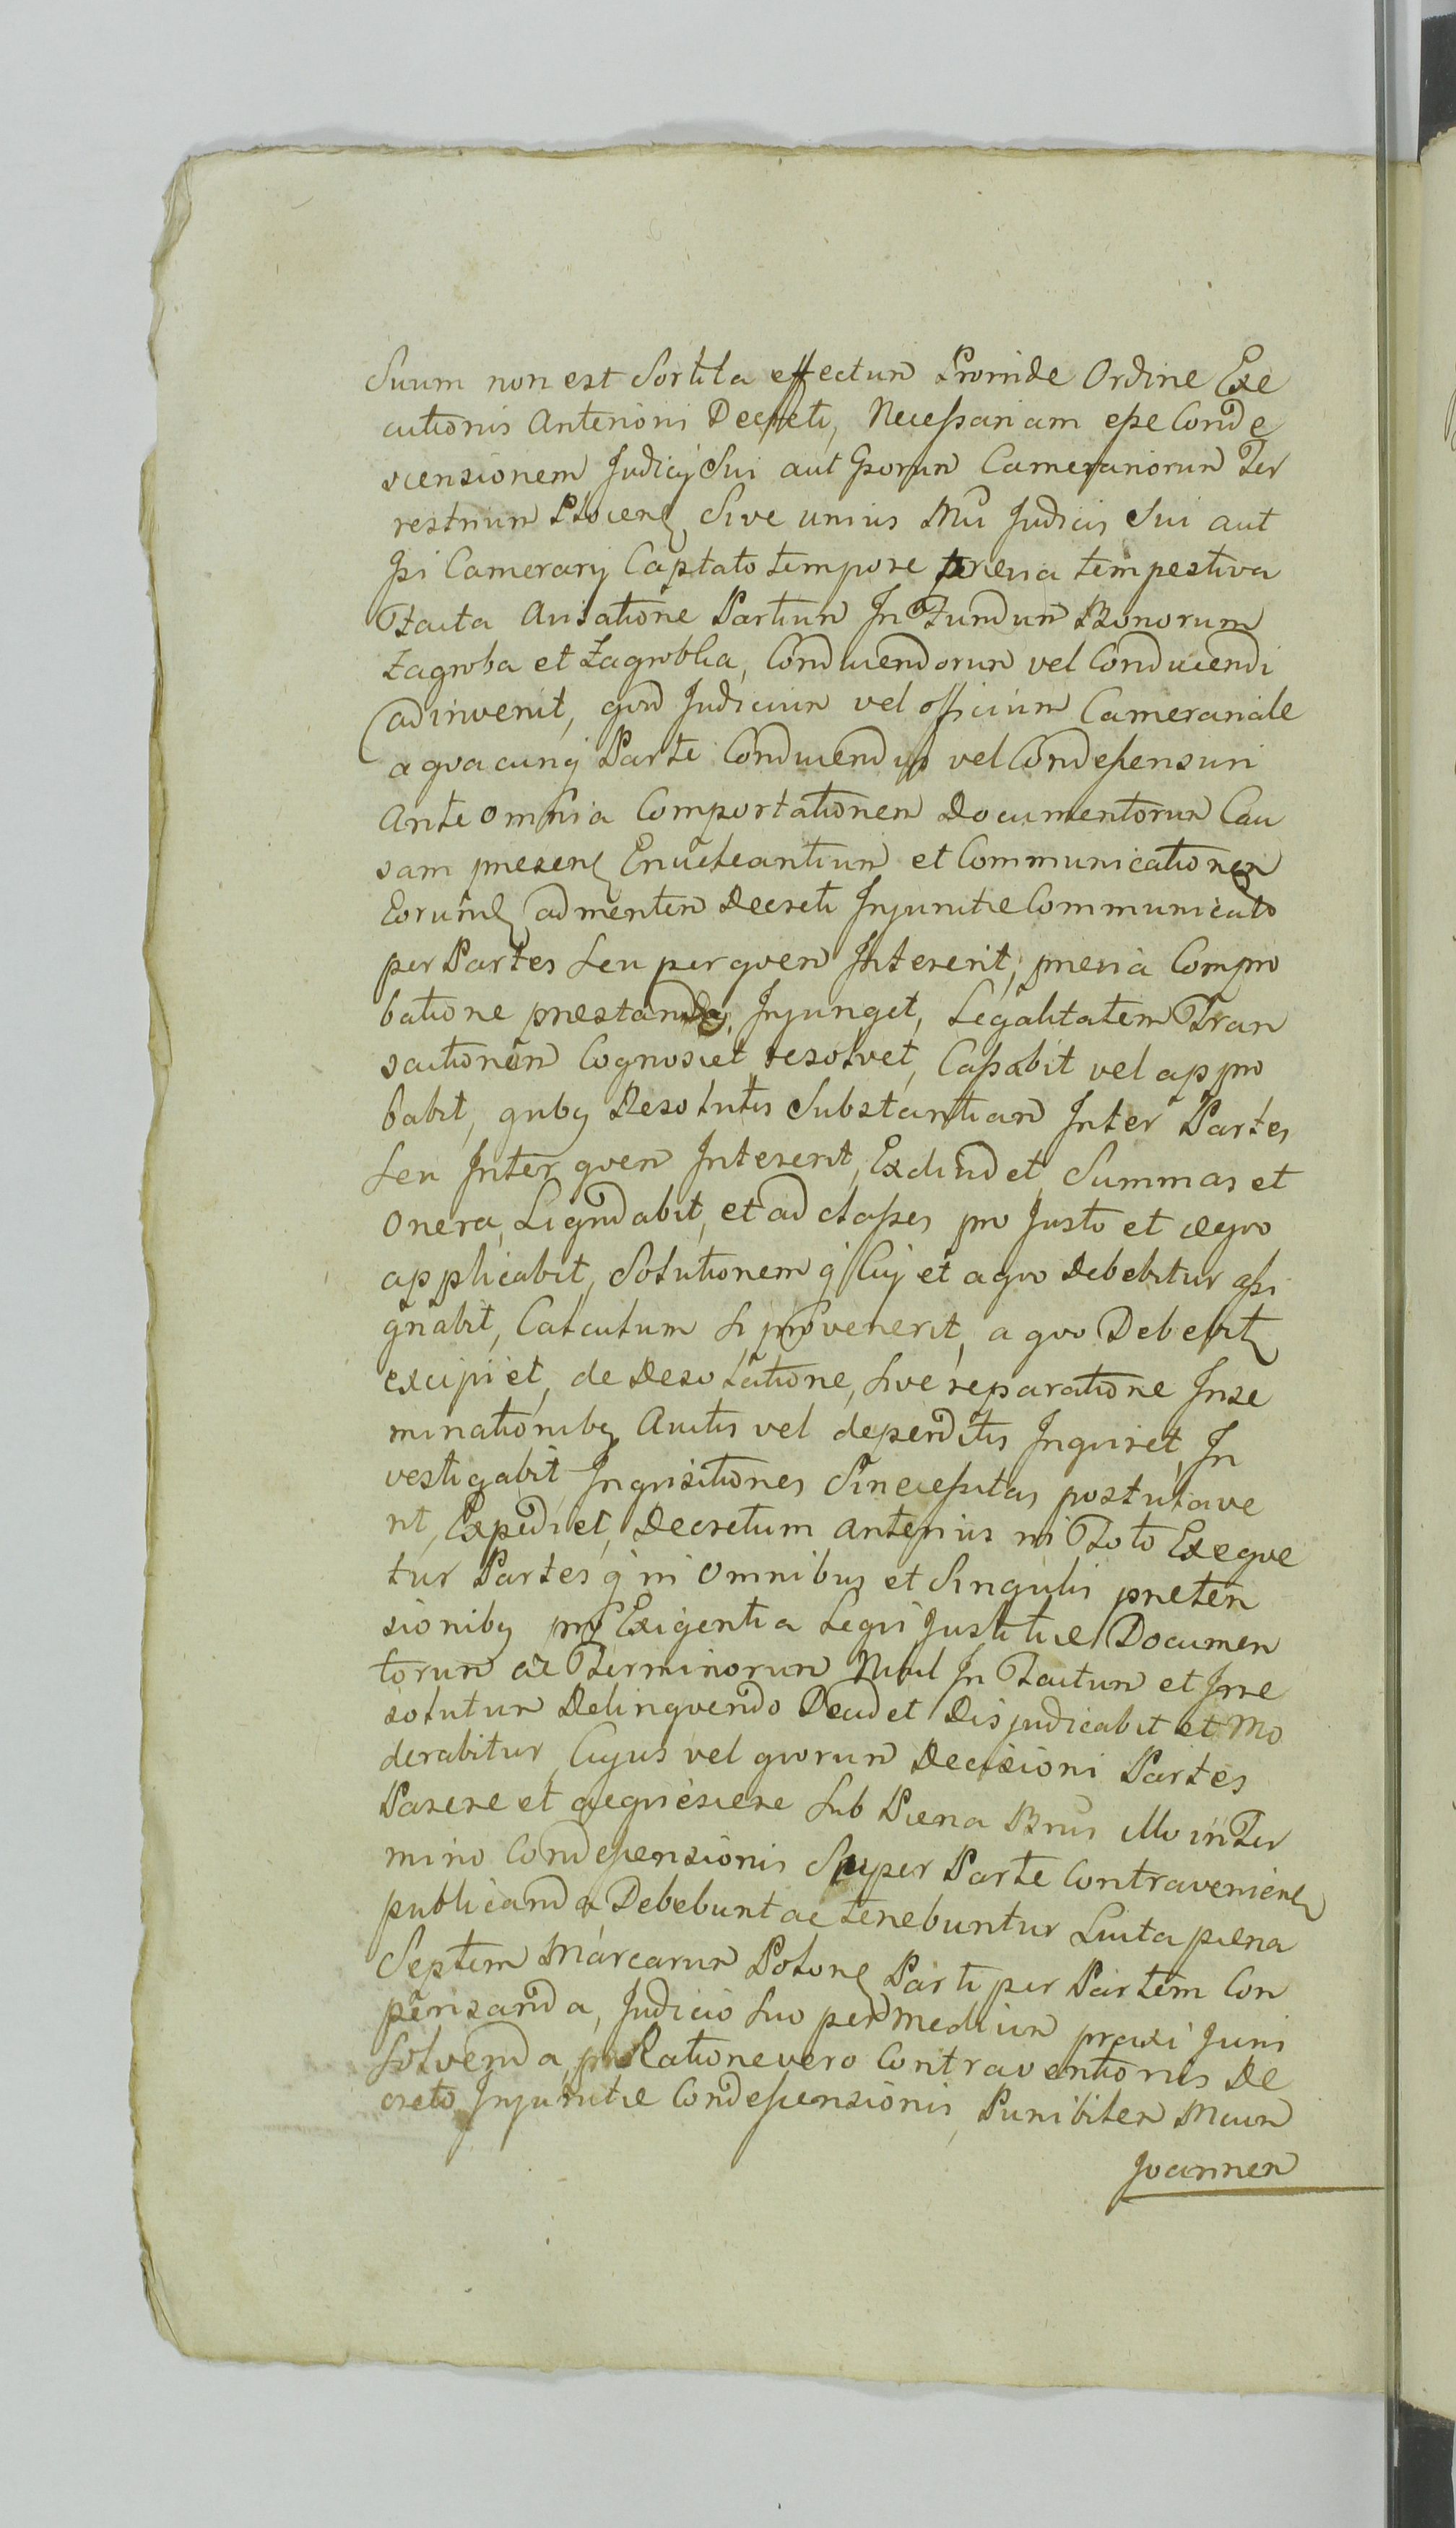 Suum non est Sortita effectum Proinde Ordine Exe
cutionis Anterioris Decreti, Necessariam esse Conde
scensionem Judicij Sui aut Gsorum Camerariorum Ter
restrium Sive unius Mci Judicis Sui aut
Gsi Camerarij Captato tempore prævia tempestiva
Facta Avisatione Partium In Fundum Bonorum
Zagroba et Zagroblia, Conducendorum vel Conducendi
adinvenit, qvod Judicium vel officium Camerariale
a qvacunq Parte Conducendum vel Condescensuri
Ante omnia Comportationem Documentorum Cau
sam præsen Enucleantium et Communicationem
Eorund ad mentem Decreti Injunctæ Communicato
per Partes Seu per qvem Intererit, prævia Compro
batione præstanda, Injunget, Legalitatem Tran
sactionum Cognoscet resolvet, Cassabit vel appro
babit, qubq Resolutis Substantiam Inter Partes
Seu Inter qvem Intererit, Excludet Summas et
Onera, Liqvidabit, et ad classes pro Justo et æqvo
applicabit, Solutionem q Cuj et a qvo Debebitur assi
gnabit, Calculum Si provenerit, a qvo Debebit
excipiet, de Desolatione, Sive reparatione Inse
minationibq Auctis vel deperditis Inqviret, In
vestigabit Inqvisitiones Si necessitas postulave
rit, Expediet, Decretum anterius in Toto Exeqve
tur Partes q in Omnibus et Singulis præten
sionibq pro Exigentia Legis Justitiæ Documen
torum ac Terminorum Nihil In Tacitum et Irre
solutum Delinqvendo Decidet Disjudicabit et Mo
derabitur, Cujus vel qvorum Decisioni Partes
Parere et acqviescere Sub Pæna Bnis illo in Ter
mino Condescensionis Super Parte Contravenien
publicanda Debebunt ac tenebuntur Luita pæna
Septem Marcarum Polon Parti per Partem Con
pensanda, Judicio Suo per Medium praxi Juris
Solvenda, pro Ratione vero Contraventionis De
creto Injunctæ Condescensionis, Punibilem Mcum
Joannem